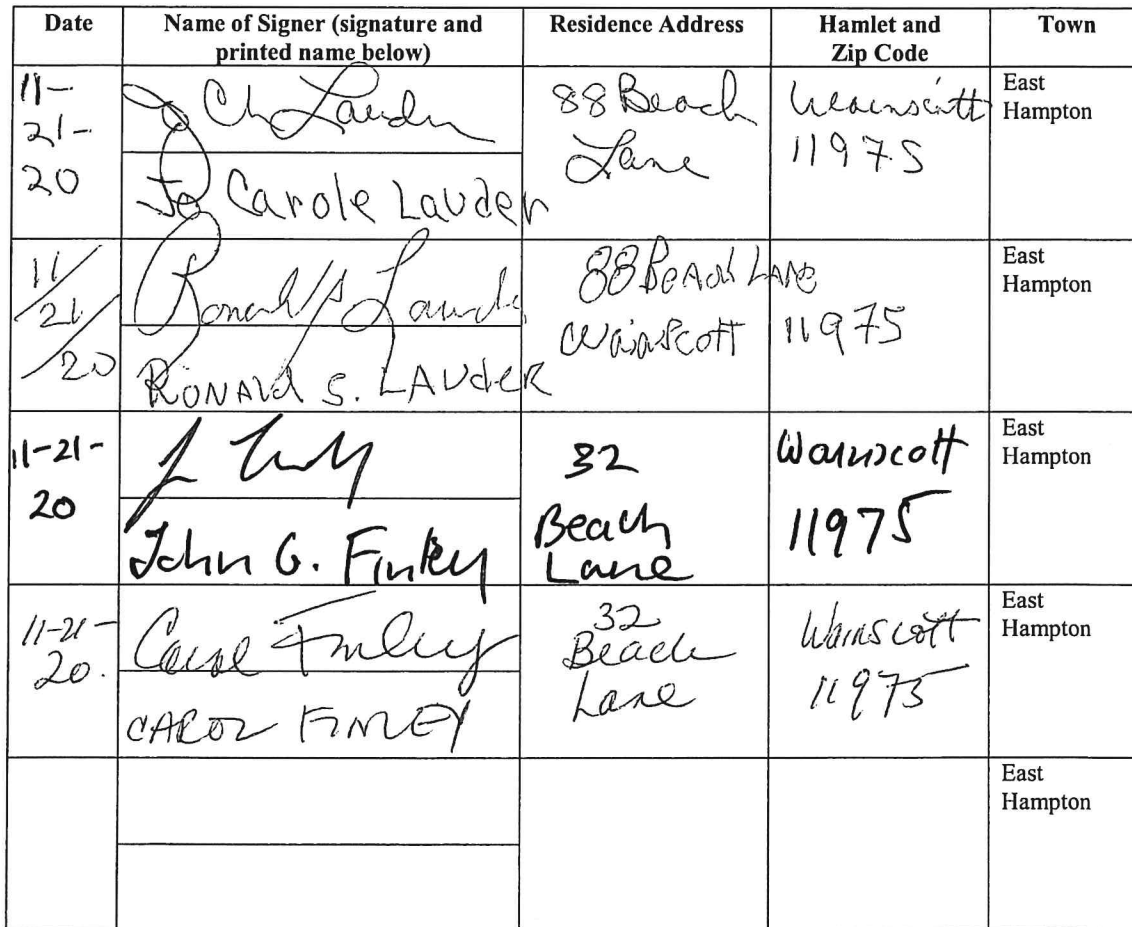 Date
Name of Signer (signature and
printed name below)
Residence Address
Hamlet and
Zip Code
Town
11-
21-
20
Jo Ch Lauder
Jo Carole Lauder
88 Beach
Lane
Wainscott
11975
East
Hampton
11/
21/
20
Ronald S Lauder
RONALd S. LAUdeR
88 BeAch LANe
WainScott 11975
East
Hampton
11-21-
20
John G. Finley
32
Beach
Lane
Wainscott
11975
East
Hampton
11-21-
20.
Carol Finley
CAROL FINLEY
32
Beach
Lane
Wainscott
11975
East
Hampton
East
Hampton